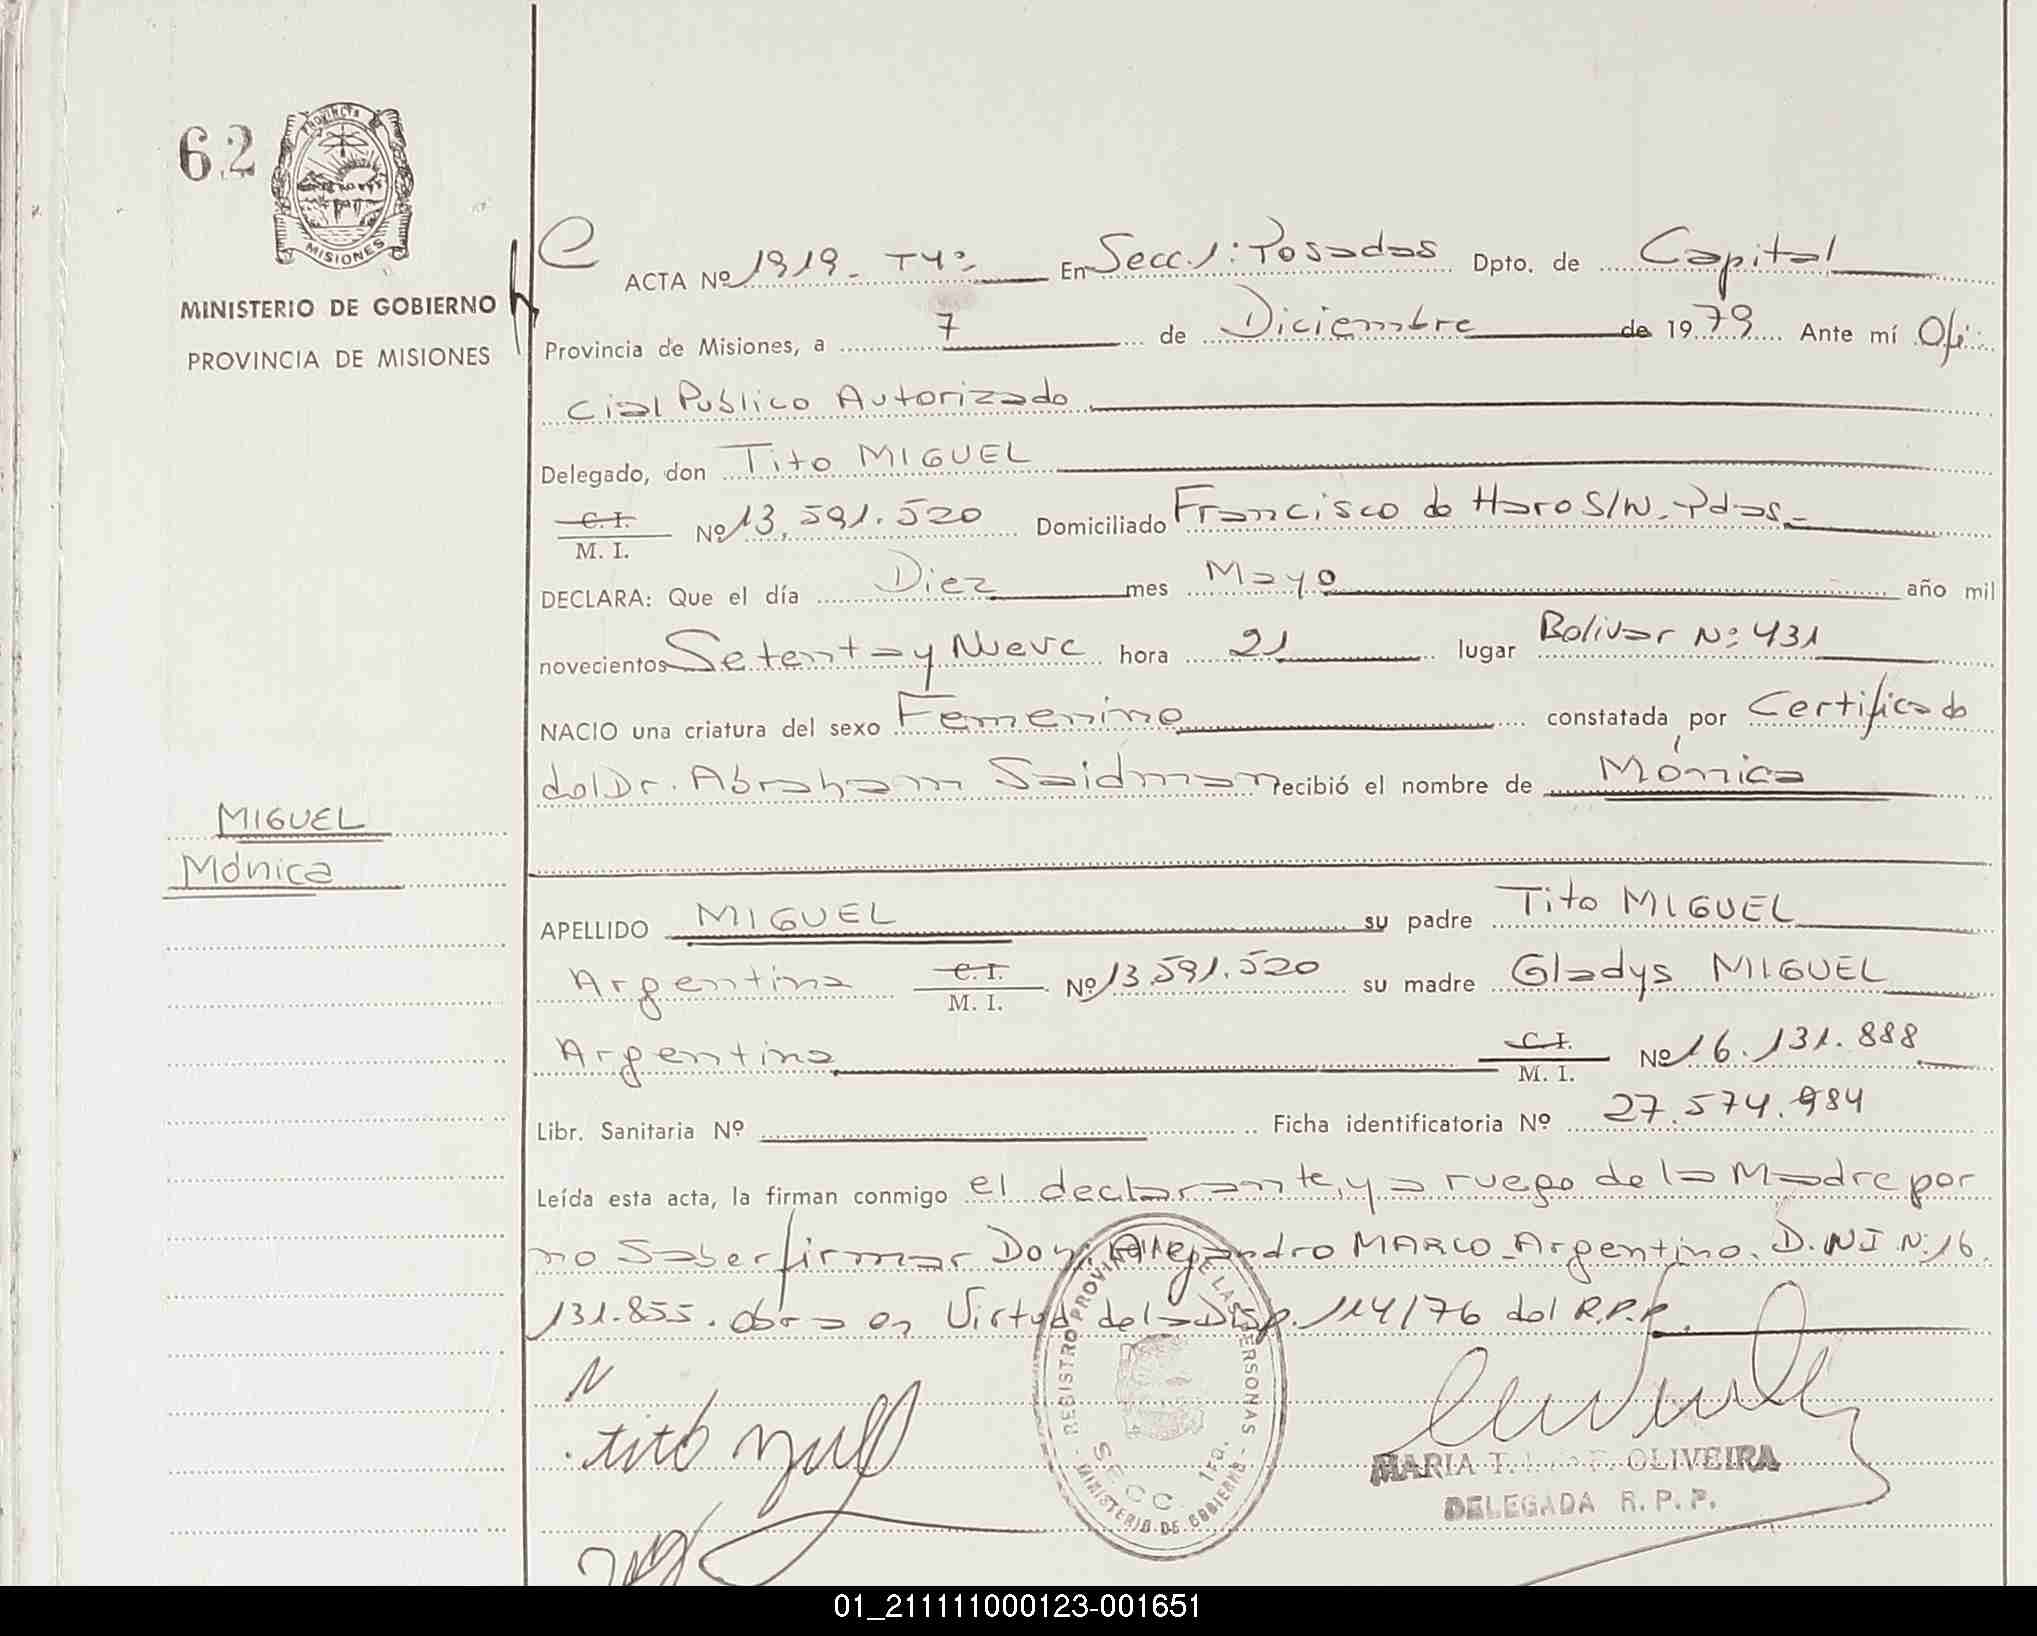 62
PROVINCIA
MISIONES
MINISTERIO DE GOBIERNO
PROVINCIA DE MISIONES
ACTA Nº 1919. T4º En Secc. 1: Posadas Dpto. de Capital
Provincia de Misiones, a 7 de Diciembre de 1979 Ante mí Ofi
cial Publico Autorizado
Delegado, don Tito MIGUEL
C.I. M. I. Nº 13.591.520 Domiciliado Francisco de Haro S/N. Pdas.
DECLARA: Que el día Diez mes Mayo año mil
novecientos Setenta y Nueve hora 21 lugar Bolivar Nº 431
NACIO una criatura del sexo Femenino constatada por Certificado
del Dr. Abraham Saidman recibió el nombre de Mónica
MIGUEL
Mónica
APELLIDO MIGUEL su padre Tito MIGUEL
Argentina C.I. M. I. Nº 13.591.520 su madre Gladys MIGUEL
Argentina C.I. M. I. Nº 16.131.888
Libr. Sanitaria Nº Ficha identificatoria Nº 27.574.984
Leída esta acta, la firman conmigo el declarante, y a ruego de la Madre por
no Saber firmar Don: Alejandro MARCO. Argentino. D.NI.N:16.
131.855. obra en Virtud de la Disp. 114/76 del R.P.P.
REGISTRO PROVINCIAL DE LAS PERSONAS
SECC. 1ra.
MINISTERIO DE GOBIERNO
tito
MARIA T. OLIVEIRA
DELEGADA R. P. P.
01_211111000123-001651